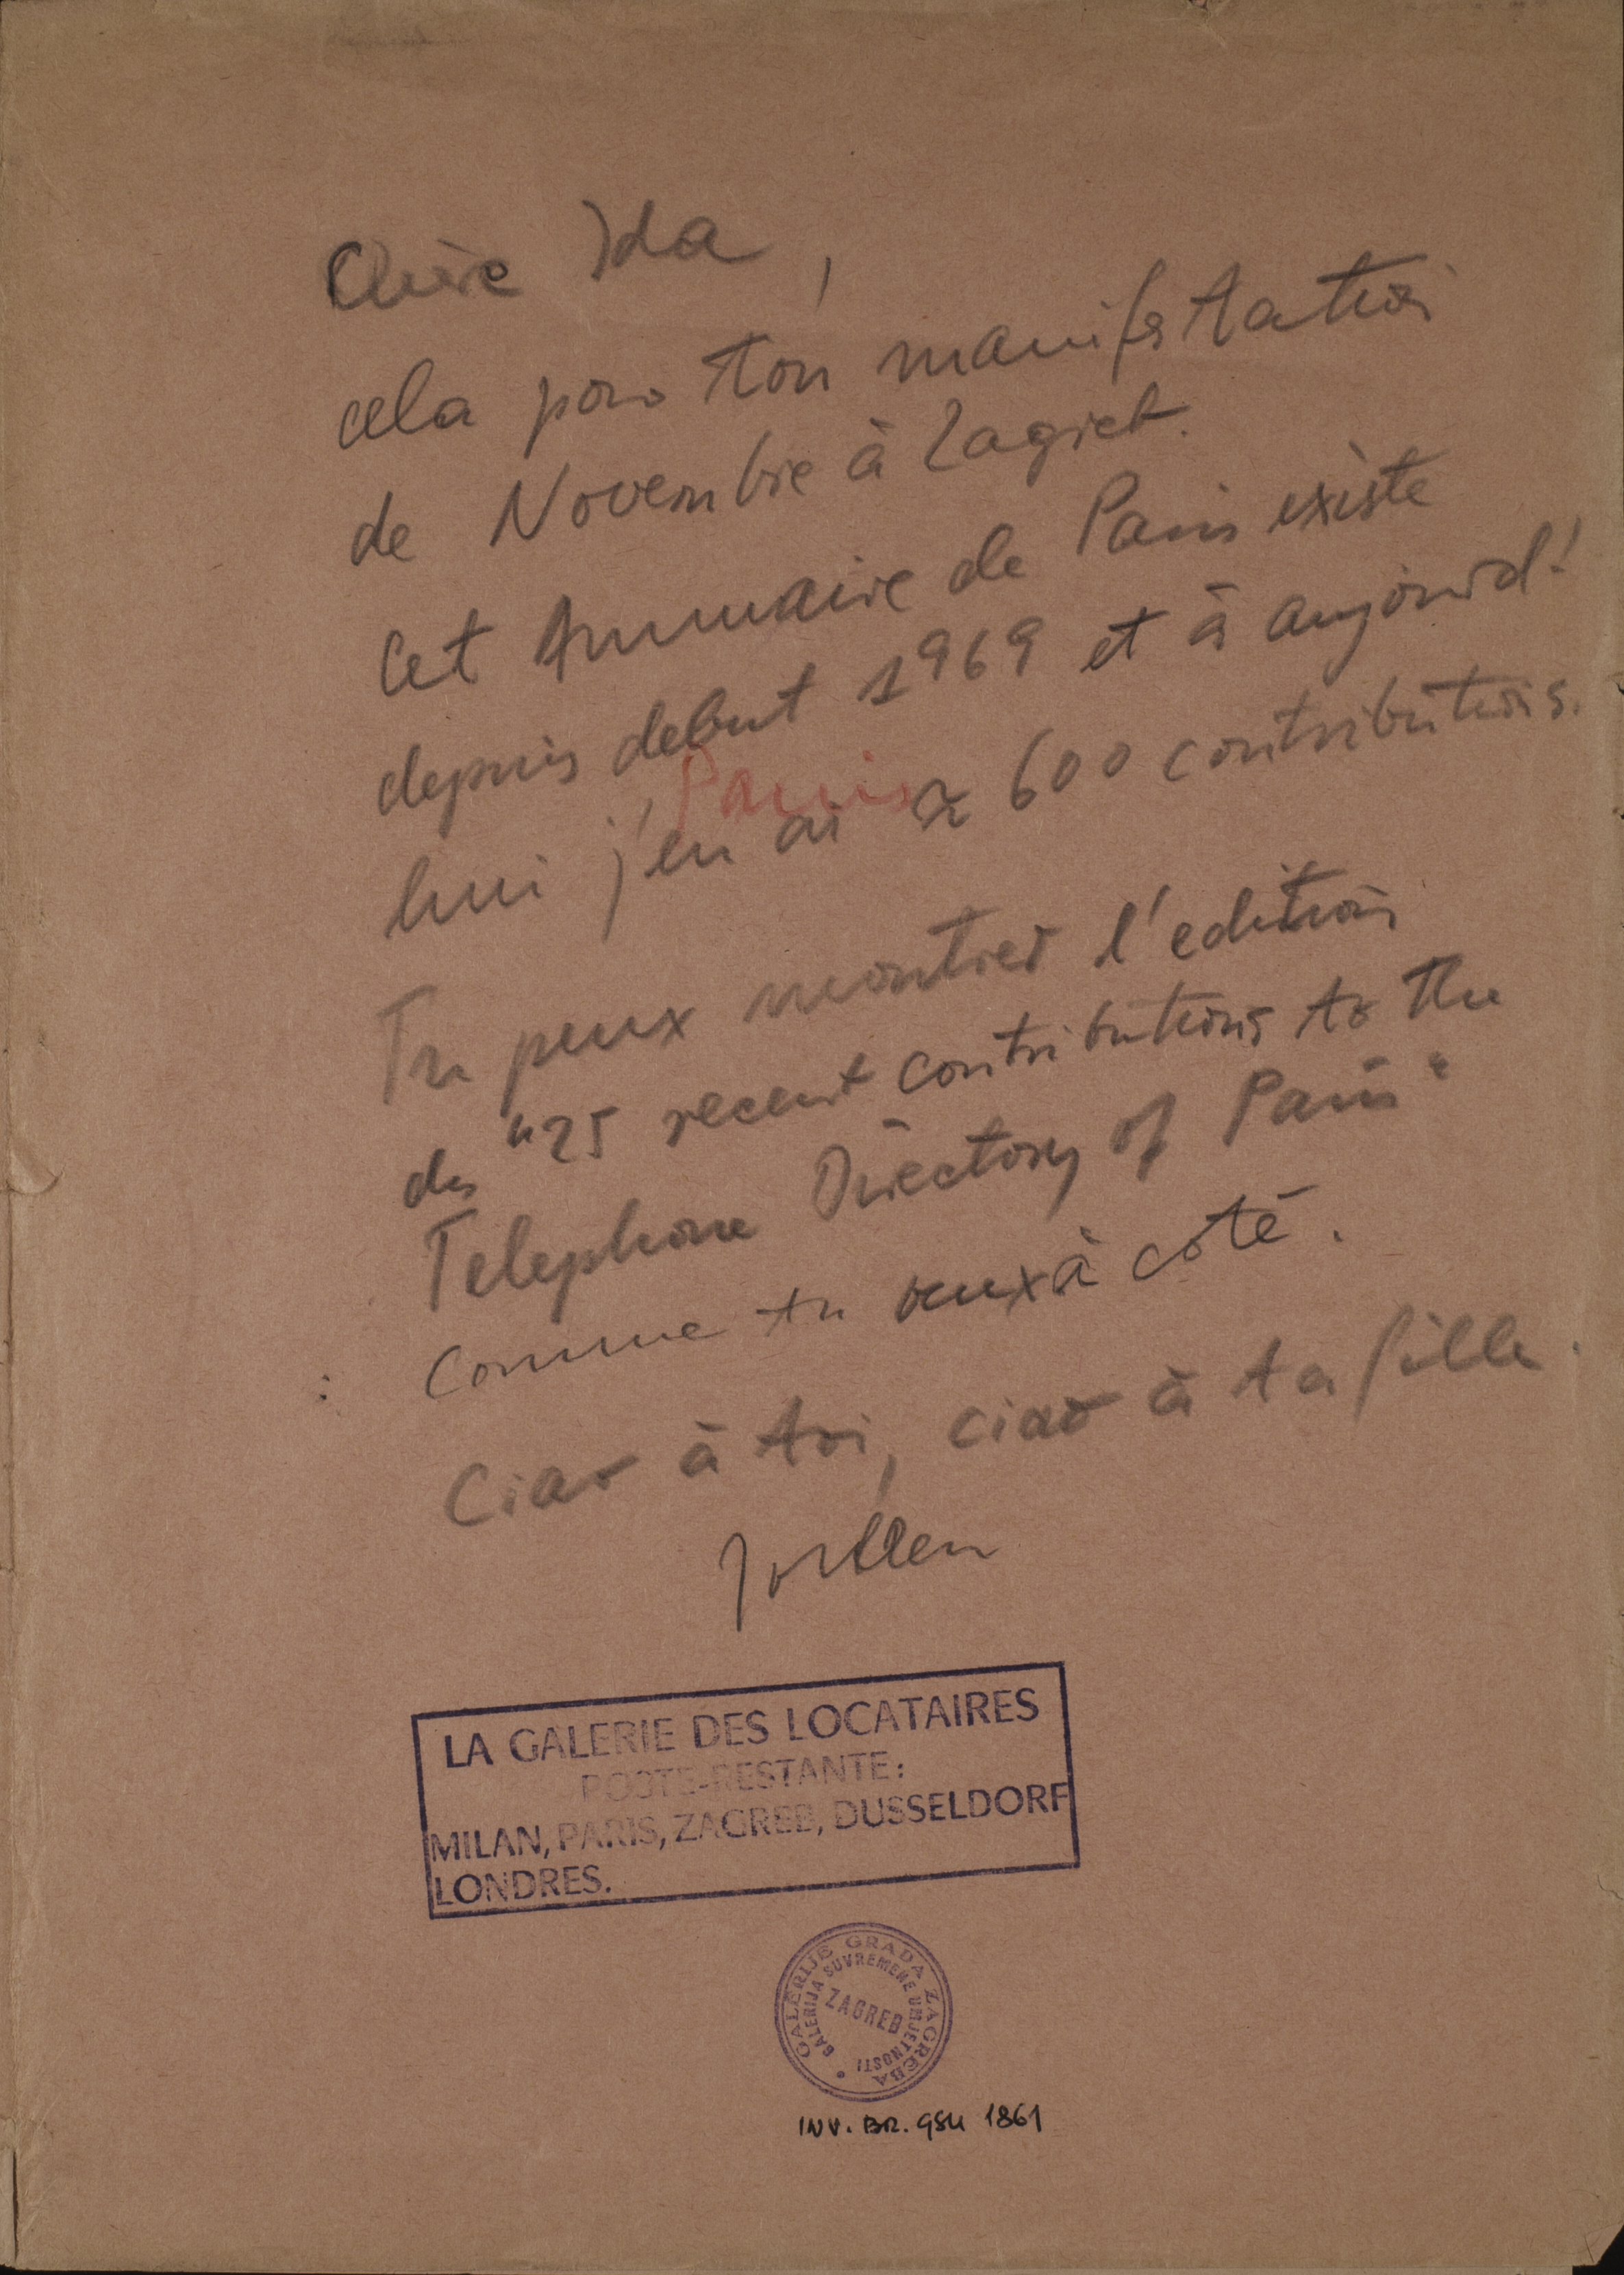 Chère Ida,
cela pour ton manifestation
de Novembre à Zagreb.
Cet Annuaire de Paris existe
depuis debut 1969 et à aujourd'
Paris
hui j'en ai ≈ 600 contributions.
Tu peux montrer l'edition
des "25 recent contributions to the
Telephone Directory of Paris"
: comme tu veux à côté.
Ciao à toi, ciao à ta fille.
LA GALERIE DES LOCATAIRES
POSTE-RESTANTE:
MILAN, PARIS, ZAGREB, DUSSELDORF
LONDRES.
GALERIJE GRADA ZAGREBA
GALERIJA SUVREMENE UMJETNOSTI
ZAGREB
INV. BR. GSU 1861